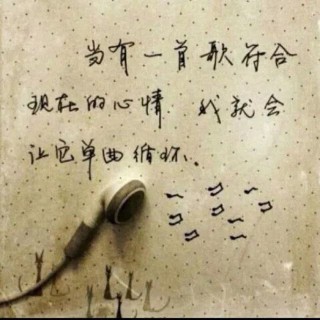 当有一首歌符合
现在的心情 我就会
让它单曲循环、